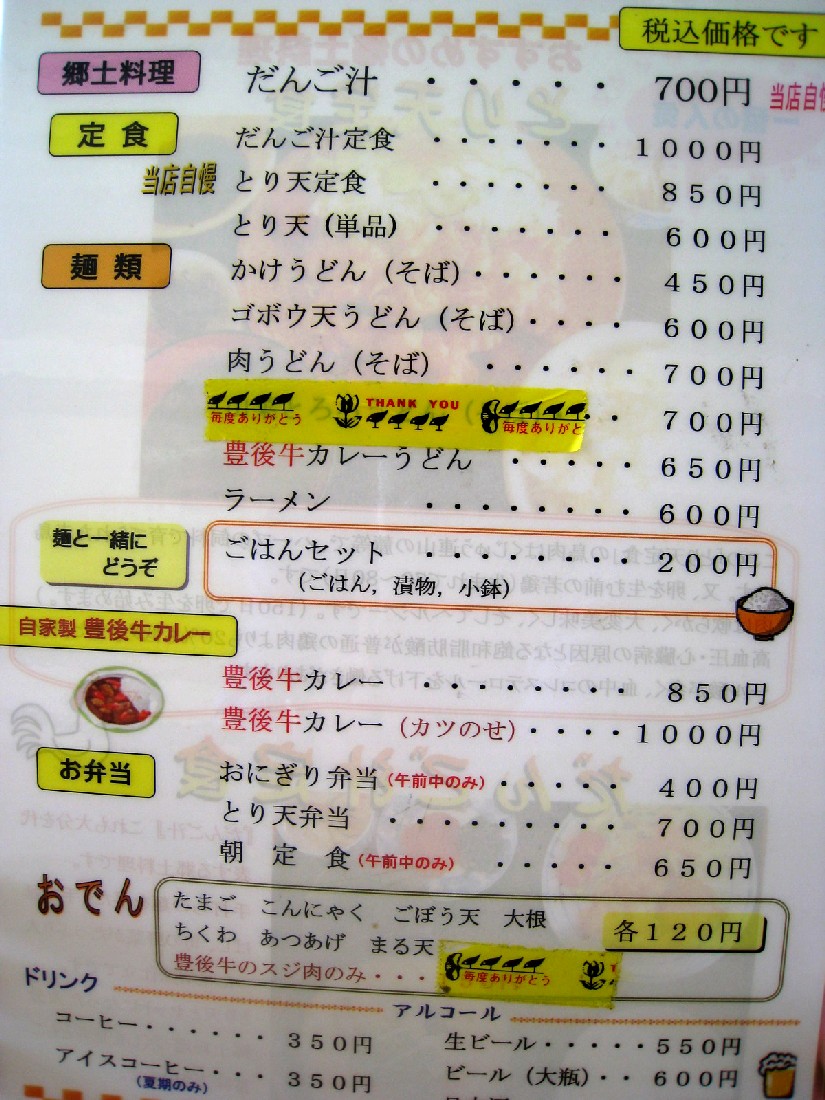 税込価格です
郷土料理 だんご汁 ・・・・・・ 700円 当店自慢
定食 だんご汁定食 ・・・・・・・ 1000円
当店自慢 とり天定食 ・・・・・・・ 850円
とり天（単品） ・・・・・・・ 600円
麺類 かけうどん（そば）・・・・・・・ 450円
ゴボウ天うどん（そば）・・・・・ 600円
肉うどん（そば） ・・・・・・ 700円
THANK YOU
毎度ありがとう 毎度ありがと ・ 700円
豊後牛カレーうどん ・・・・・・ 650円
ラーメン ・・・・・・・・ 600円
麺と一緒にどうぞ
ごはんセット ・・・・・・・・・ 200円
（ごはん，漬物，小鉢）
自家製 豊後牛カレー
豊後牛カレー ・・・・・・・・ 850円
豊後牛カレー（カツのせ）・・・・・ 1000円
お弁当 おにぎり弁当（午前中のみ）・・・・・ 400円
とり天弁当 ・・・・・・・・・ 700円
朝定食（午前中のみ） ・・・・・ 650円
おでん たまご こんにゃく ごぼう天 大根
ちくわ あつあげ まる天 各120円
豊後牛のスジ肉のみ・・・ 毎度ありがとう
ドリンク
アルコール
コーヒー・・・・・・ 350円 生ビール・・・・・550円
アイスコーヒー・・・ 350円 ビール（大瓶）・・600円
（夏期のみ）